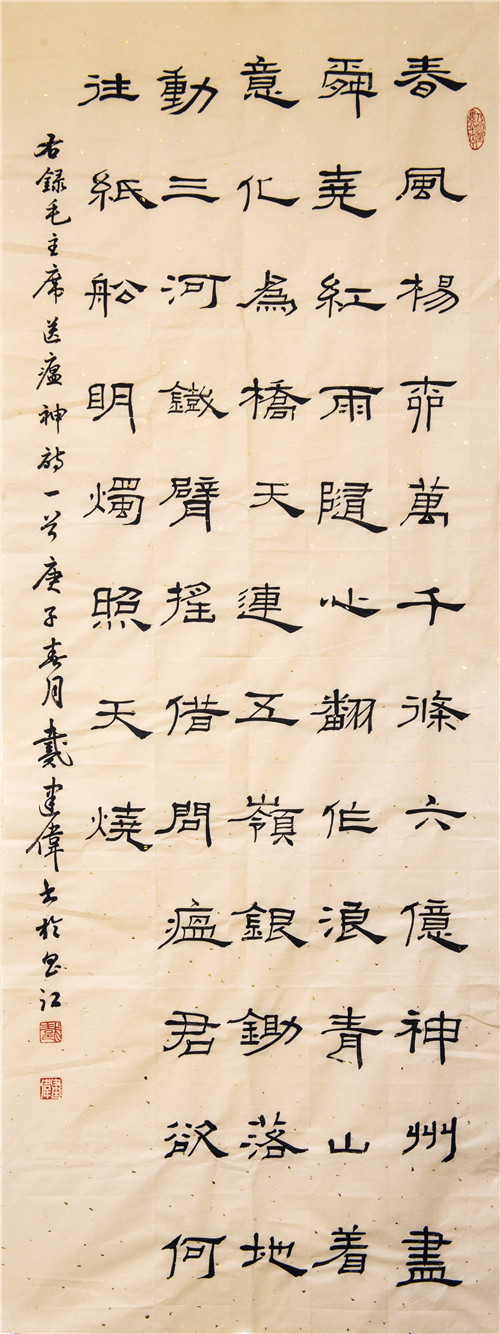 春風楊柳萬千條六億神州盡
舜堯紅雨隨心翻作浪青山着
意化為橋天連五嶺銀鋤落地
動三河鐵臂搖借問瘟君欲何
往紙船明燭照天燒
右錄毛主席送瘟神詩一首庚子春月戴建偉書於皂江